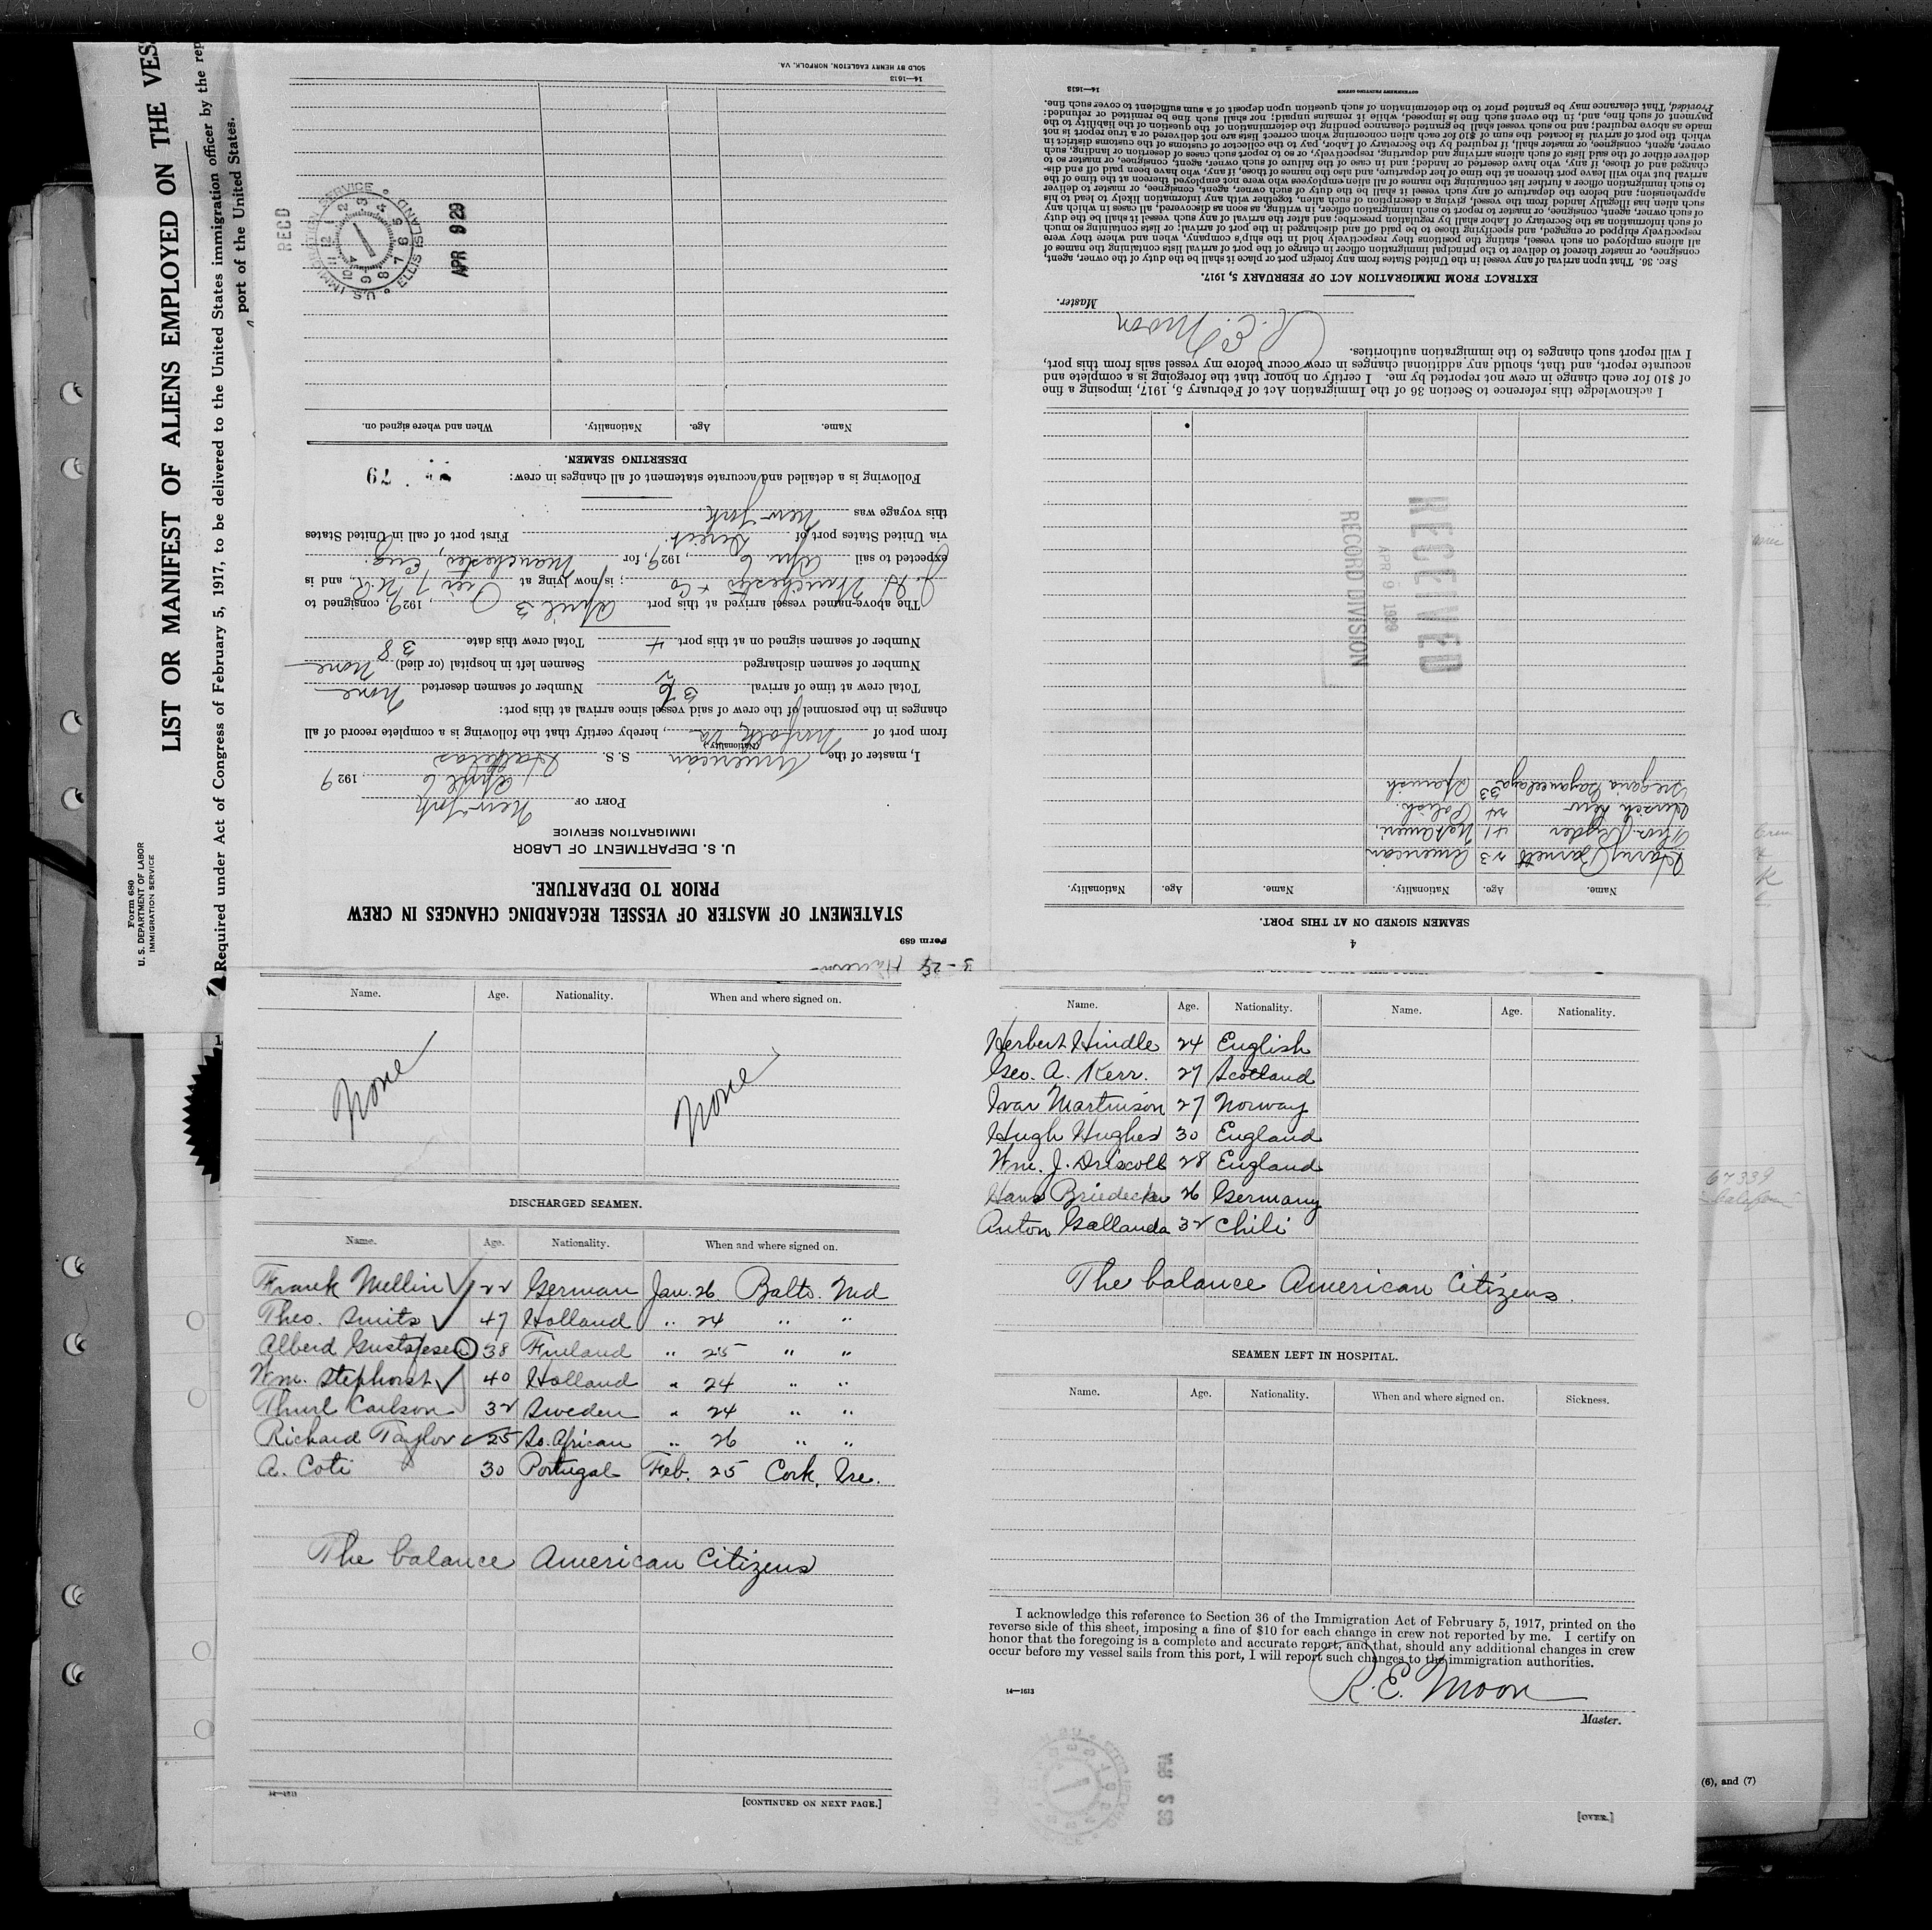 LIST OR MANIFEST OF ALIENS EMPLOYED ON THE VES
Required under Act of Congress of February 5, 1917, to be delivered to the United States immigration officer by the rep
port of the United States.
Form 680
U. S. DEPARTMENT OF LABOR
IMMIGRATION SERVICE
Form 689
STATEMENT OF MASTER OF VESSEL REGARDING CHANGES IN CREW
PRIOR TO DEPARTURE.
U. S. DEPARTMENT OF LABOR
IMMIGRATION SERVICE
PORT OF New York
April 6, 1929
I, master of the American S. S. Halfelas
(Nationality)
from port of Norfolk, Va, hereby certify that the following is a complete record of all
changes in the personnel of the crew of said vessel since arrival at this port:
Total crew at time of arrival Number of seamen deserted None
Number of seamen discharged Seamen left in hospital (or died) None
Number of seamen signed on at this port 4 Total crew this date 38
The above-named vessel arrived at this port April 3, 1929, consigned to
J. H. Winchester & Co; is now lying at Pier 7 N. R., and is
expected to sail Apr. 6, 1929, for Manchester, Eng.
via United States port of Direct. First port of call in United States
this voyage was New York.
Following is a detailed and accurate statement of all changes in crew:
79
DESERTING SEAMEN.
Name. Age. Nationality. When and where signed on.
REC'D
U.S. IMMIGRATION SERVICE ELLIS ISLAND
APR 9 29
14—1613
SOLD BY HENRY EAGLETON, NORFOLK, VA.
4
SEAMEN SIGNED ON AT THIS PORT.
Name. Age. Nationality. Name. Age. Nationality.
Harry Barnett 23 American
Thos. Ryder 41
24 Polish.
33 Spanish
RECEIVED
APR 9 1929
RECORD DIVISION
I acknowledge this reference to Section 36 of the Immigration Act of February 5, 1917, imposing a fine
of $10 for each change in crew not reported by me. I certify on honor that the foregoing is a complete and
accurate report, and that, should any additional changes in crew occur before my vessel sails from this port,
I will report such changes to the immigration authorities.
R. E. Moon
Master.
EXTRACT FROM IMMIGRATION ACT OF FEBRUARY 5, 1917.
SEC. 36. That upon arrival of any vessel in the United States from any foreign port or place it shall be the duty of the owner, agent,
consignee, or master thereof to deliver to the principal immigration officer in charge of the port of arrival lists containing the names of
all aliens employed on such vessel, stating the positions they respectively hold in the ship's company, when and where they were
respectively shipped or engaged, and specifying those to be paid off and discharged in the port of arrival; or lists containing so much
of such information as the Secretary of Labor shall by regulation prescribe; and after the arrival of any such vessel it shall be the duty
of such owner, agent, consignee, or master to report to such immigration officer, in writing, as soon as discovered, all cases in which any
such alien has illegally landed from the vessel, giving a description of such alien, together with any information likely to lead to his
apprehension; and before the departure of any such vessel it shall be the duty of such owner, agent, consignee, or master to deliver
to such immigration officer a further list containing the names of all alien employees who were not employed thereon at the time of the
arrival but who will leave port thereon at the time of her departure, and also the names of those, if any, who have been paid off and dis-
charged and of those, if any, who have deserted or landed; and in case of the failure of such owner, agent, consignee, or master so to
deliver either of the said lists of such aliens arriving and departing, respectively, or so to report such cases of desertion or landing, such
owner, agent, consignee, or master, shall, if required by the Secretary of Labor, pay to the collector of customs of the customs district in
which the port of arrival is located the sum of $10 for each alien concerning whom correct lists are not delivered or a true report is not
made as above required; and no such vessel shall be granted clearance pending the determination of the question of the liability to the
payment of such fine, and, in the event such fine is imposed, while it remains unpaid; nor shall such fine be remitted or refunded:
Provided, That clearance may be granted prior to the determination of such question upon deposit of a sum sufficient to cover such fine.
14—1613
GOVERNMENT PRINTING OFFICE
Name. Age. Nationality. When and where signed on.
None None
DISCHARGED SEAMEN.
Name. Age. Nationality. When and where signed on.
Frank Mellin 22 German Jan. 26 Balto. Md
Theo. Smits 47 Holland " 24 " "
Alberd Gustafesen 38 Finland " 25 " "
Wm. Stephorst 40 Holland " 24 " "
Thure Carlson 32 Sweden " 24 " "
Richard Taylor 25 So. African " 26 " "
A. Coti 30 Portugal Feb. 25 Cork, Ire.
The balance American Citizens
14—1613
[CONTINUED ON NEXT PAGE.]
Name. Age. Nationality. Name. Age. Nationality.
Herbert Hindle 24 English
Geo. A. Kerr. 27 Scotland
Ivar Martinison 27 Norway
Hugh Hughes 30 England
Wm. J. Driscoll 28 England
Hans Briedecker 26 Germany
Anton Gallanda 32 Chili
The balance American Citizens.
SEAMEN LEFT IN HOSPITAL.
Name. Age. Nationality. When and where signed on. Sickness.
I acknowledge this reference to Section 36 of the Immigration Act of February 5, 1917, printed on the
reverse side of this sheet, imposing a fine of $10 for each change in crew not reported by me. I certify on
honor that the foregoing is a complete and accurate report, and that, should any additional changes in crew
occur before my vessel sails from this port, I will report such changes to the immigration authorities.
R. E. Moon
Master.
14—1613
[OVER.]
67339
(6), and (7)